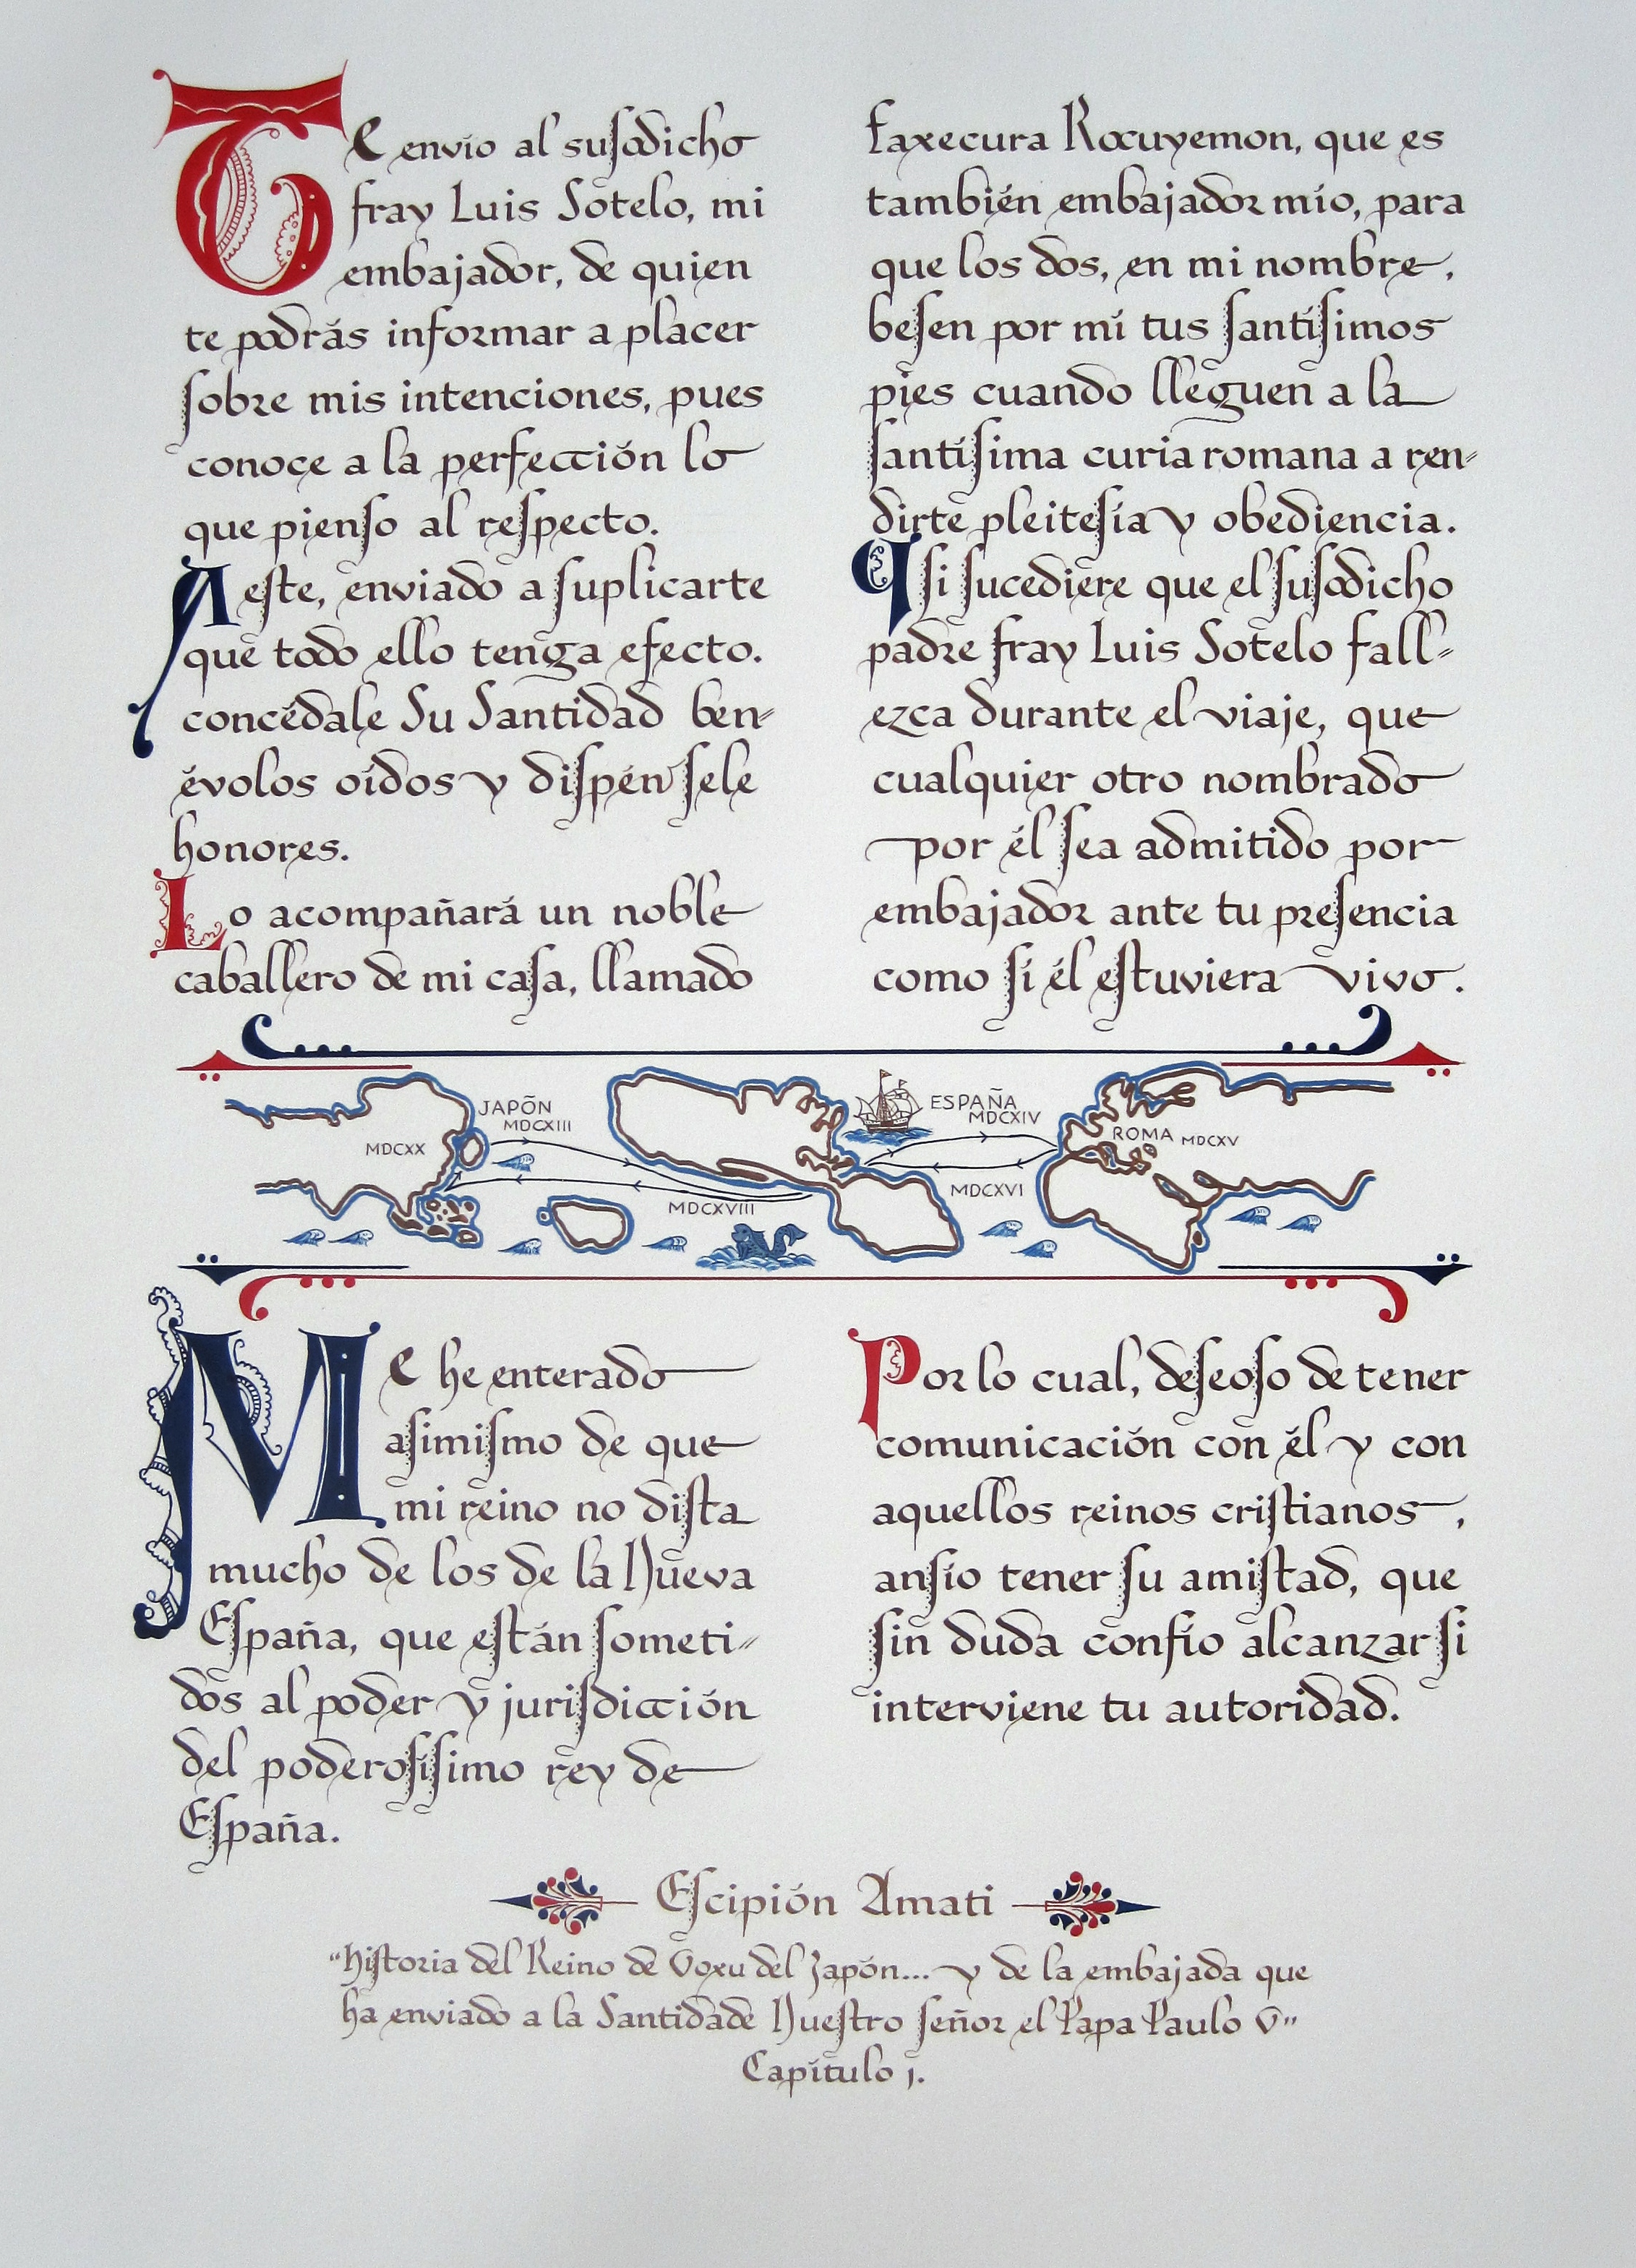 Te envío al susodicho
fray Luis Sotelo, mi
embajador, de quien
te podrás informar a placer
sobre mis intenciones, pues
conoce a la perfección lo
que pienso al respecto.
A este, enviado a suplicarte
que todo ello tenga efecto.
concédale Su Santidad ben-
évolos oídos y dispénsele
honores.
Lo acompañará un noble
caballero de mi casa, llamado
faxecura Rocuyemon, que es
también embajador mío, para
que los dos, en mi nombre,
besen por mí tus santísimos
pies cuando lleguen a la
santísima curia romana a ren-
dirte pleitesía y obediencia.
Y si sucediere que el susodicho
padre fray Luis Sotelo fall-
ezca durante el viaje, que
cualquier otro nombrado
por él sea admitido por
embajador ante tu presencia
como si él estuviera vivo.
JAPÕN
MDCXIII
MDCXX
MDCXVIII
ESPAÑA
MDCXIV
MDCXVI
ROMA MDCXV
Me he enterado
asimismo de que
mi reino no dista
mucho de los de la Nueva
España, que están someti-
dos al poder y jurisdicción
del poderosísimo rey de
España.
Por lo cual, deseoso de tener
comunicación con él y con
aquellos reinos cristianos,
ansío tener su amistad, que
sin duda confío alcanzar si
interviene tu autoridad.
Escipión Amati
"historia del Reino de Voxu del Japón... y de la embajada que
ha enviado a la Santidade Nuestro señor el Papa Paulo V"
Capítulo j.